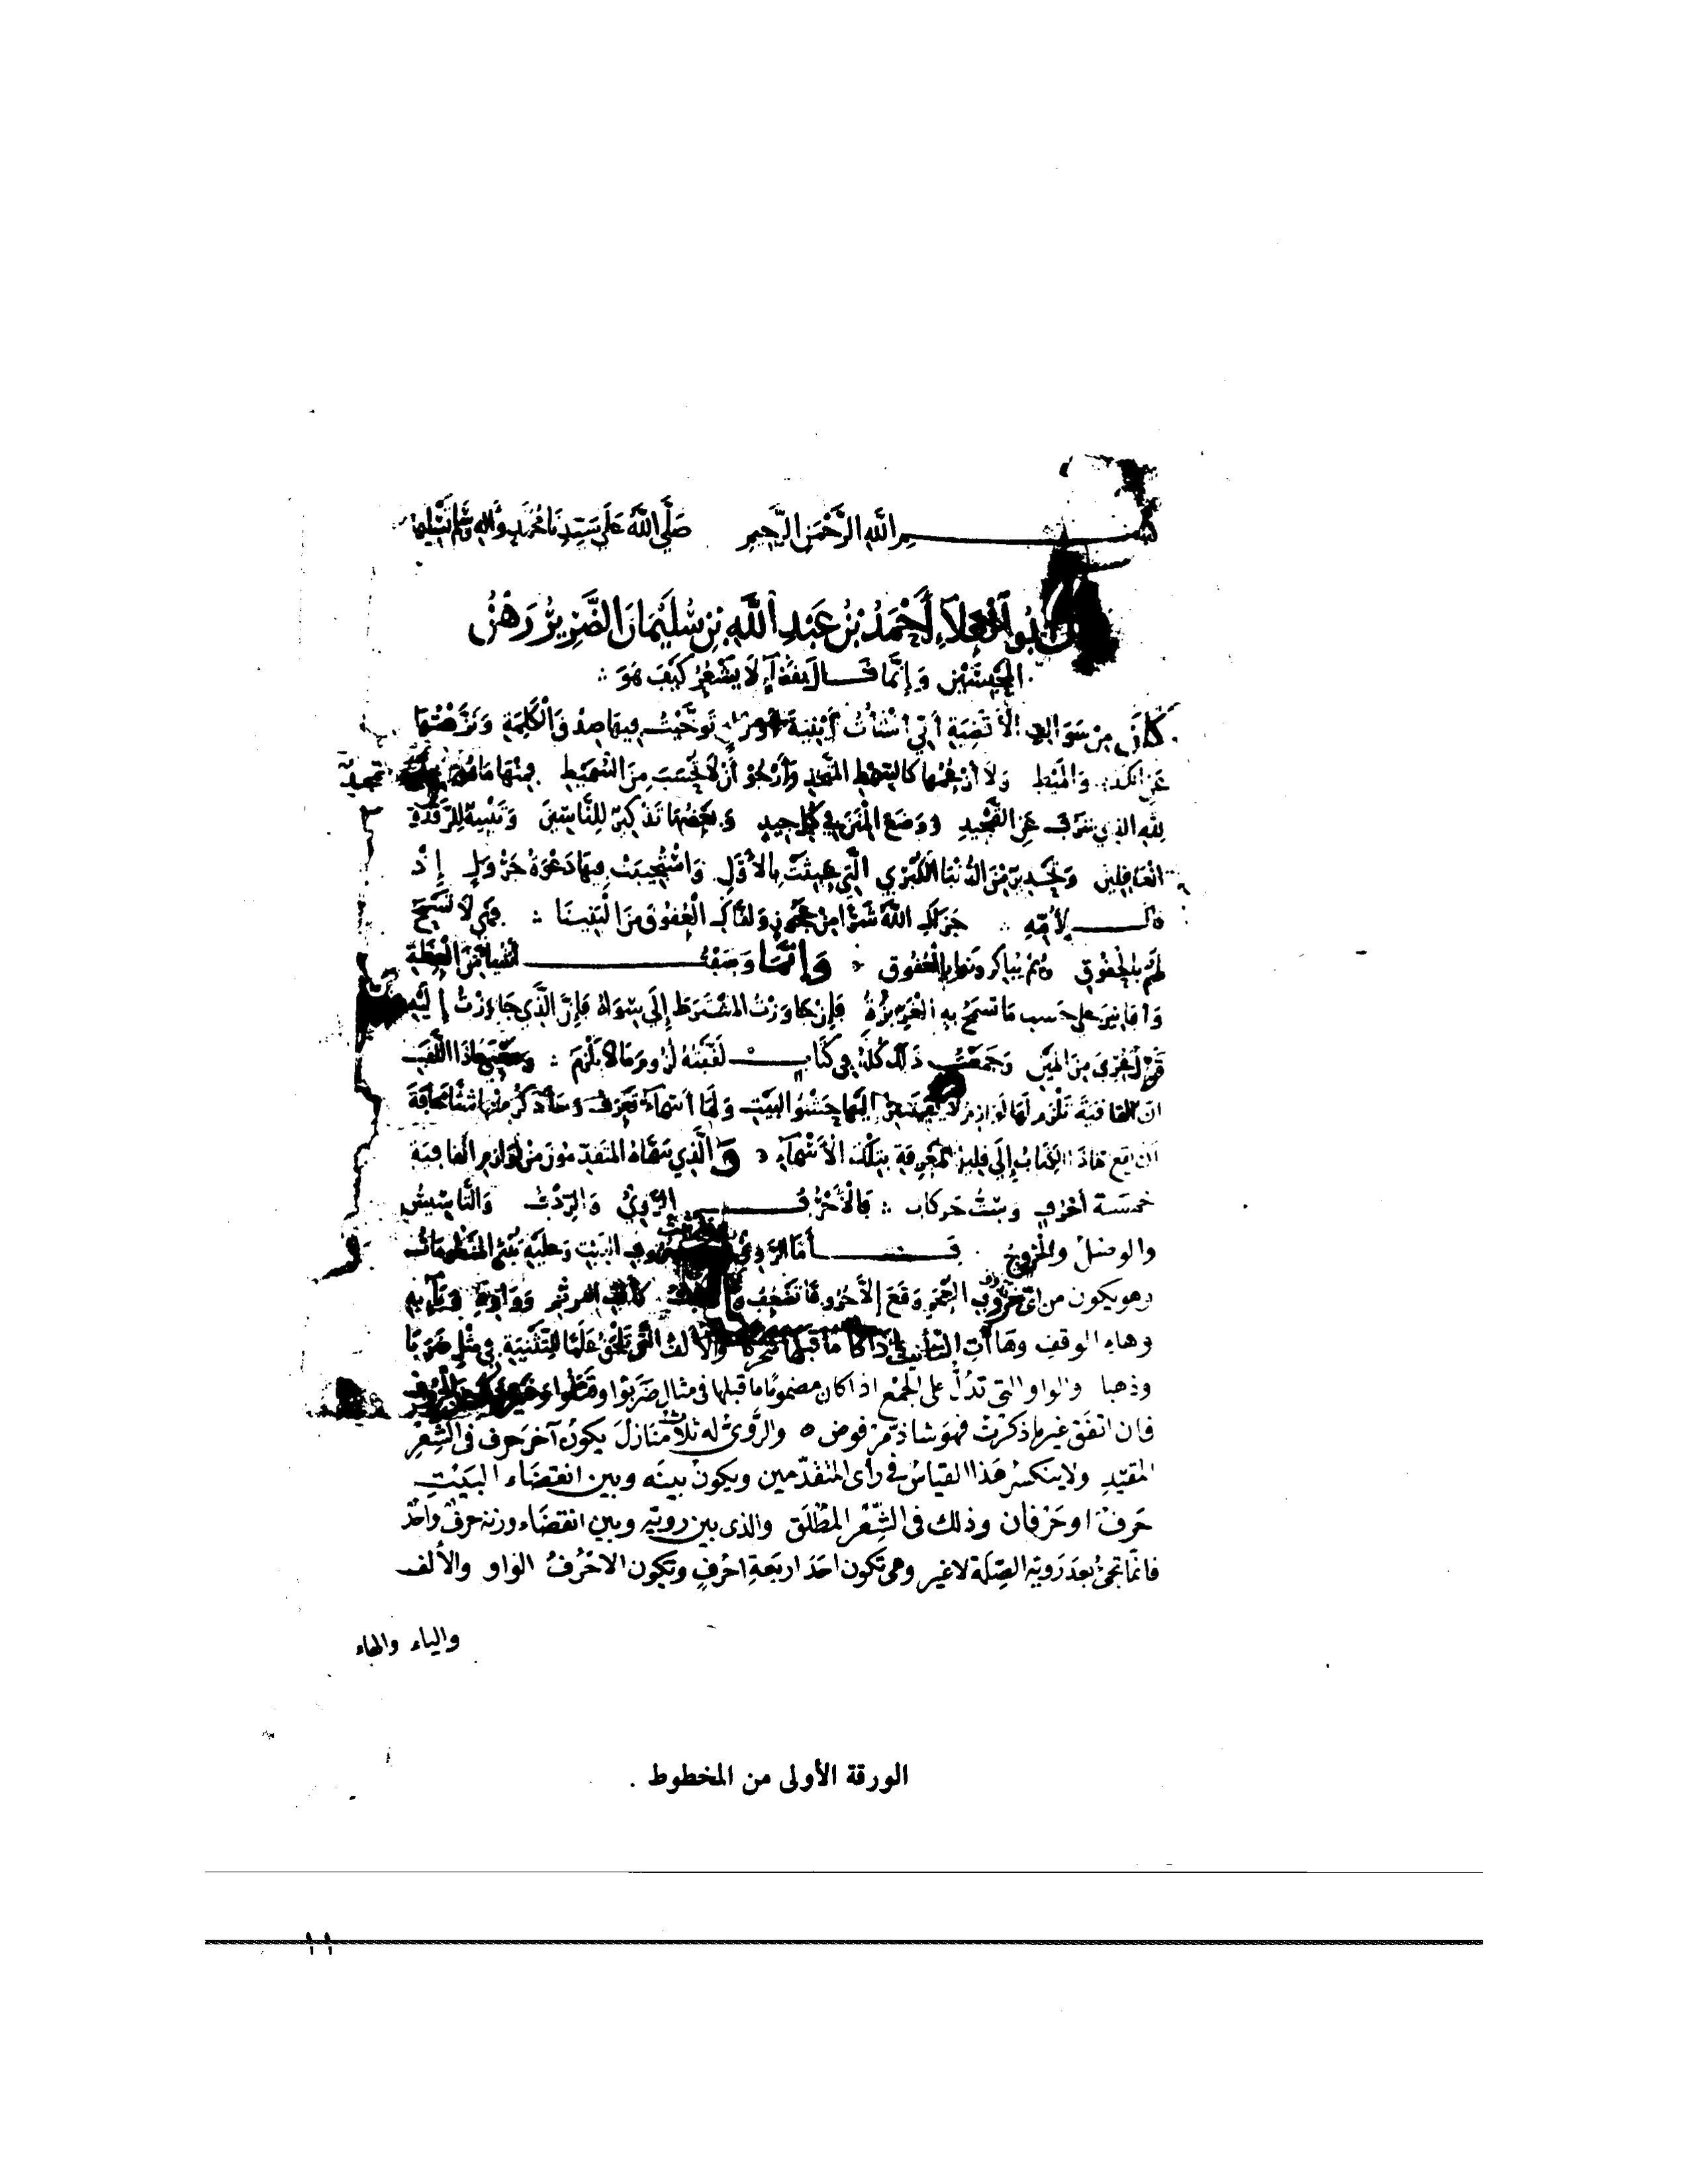 بسم الله الرحمن الرحيم صلى الله على سيدنا محمد وآله وسلم تسليما
أبو العلاء أحمد بن عبد الله بن سليمان الضرير رهن
المحبسين وإنما قال هذا لا يشعر كيف هو
كان من سوالف الأقضية أني أنشأت أبنية أوراق توخيت فيها صدق الكلمة ونزهتها
عن الكذب والميط ولا أزعمها كالسمط المتخذ وأرجو أن لا تحسب من السميط فمنها ما هو تمجيد
لله الذي شرف عن التمجيد ووضع المنن في كل جيد وبعضها تذكير للناسين وتنبيه للرقدة
الغافلين وتحذير من الدنيا الكبرى التي عبثت بالأول واستجيبت فيها دعوة جرول إذ
قال لأمه جزاك الله شرا من عجوز ولقاك العقوق من البنينا فهي لا تسمح
لهم بالحقوق وهم يباكرونها بالعقوق وإنما وصفت أشياء من العظة
وأفانين على حسب ما تسمح به الغريزة فإن جاوزت المشترط إلى سواه فإن الذي جاوزت إليه
قول عري من المين وجمعت ذلك كله في كتاب لقبته لزوم ما لا يلزم ومعنى هذا اللقب
ان القافية تلزم لها لوازم لا يفتقر إليها حشو البيت ولها أسماء تعرف وسأذكر منها شيئا مخافة
أن يقع هذا الكتاب إلى قليل المعرفة بتلك الأسماء والذي سماه المتقدمون من لوازم القافية
خمسة أحرف وست حركات فالأحرف الروي والردف والتأسيس
والوصل والخروج فأما الروي البيت وعليه تبنى المنظومات
وهو يكون من أي حروف المعجم وقع إلا حروفا تضعف كألف الترنم وواوه ويائه
وهاء الوقف وهاآت التأنيث إذا كان ما قبلها متحركا والألف التي تلحق علما للتثنية في مثل ضربا
وذهبا والواو التي تدل على الجمع اذا كان مضموما ما قبلها في مثال ضربوا وقتلوا
فان اتفق غير ما ذكرت فهو شاذ مرفوض ٥ والروى له ثلاث منازل يكون آخر حرف فى الشعر
المقيد ولا ينكسر هذا القياس في رأى المتقدمين ويكون بينه وبين انقضاء البيت
حرف او حرفان وذلك فى الشعر المطلق والذى بين رويه وبين انقضاء وزنه حرف واحد
فانما تجئ بعد رويه الصلة لا غير وهى تكون احد اربعة احرف وتكون الاحرف الواو والألف
والياء والهاء
الورقة الأولى من المخطوط .
١١